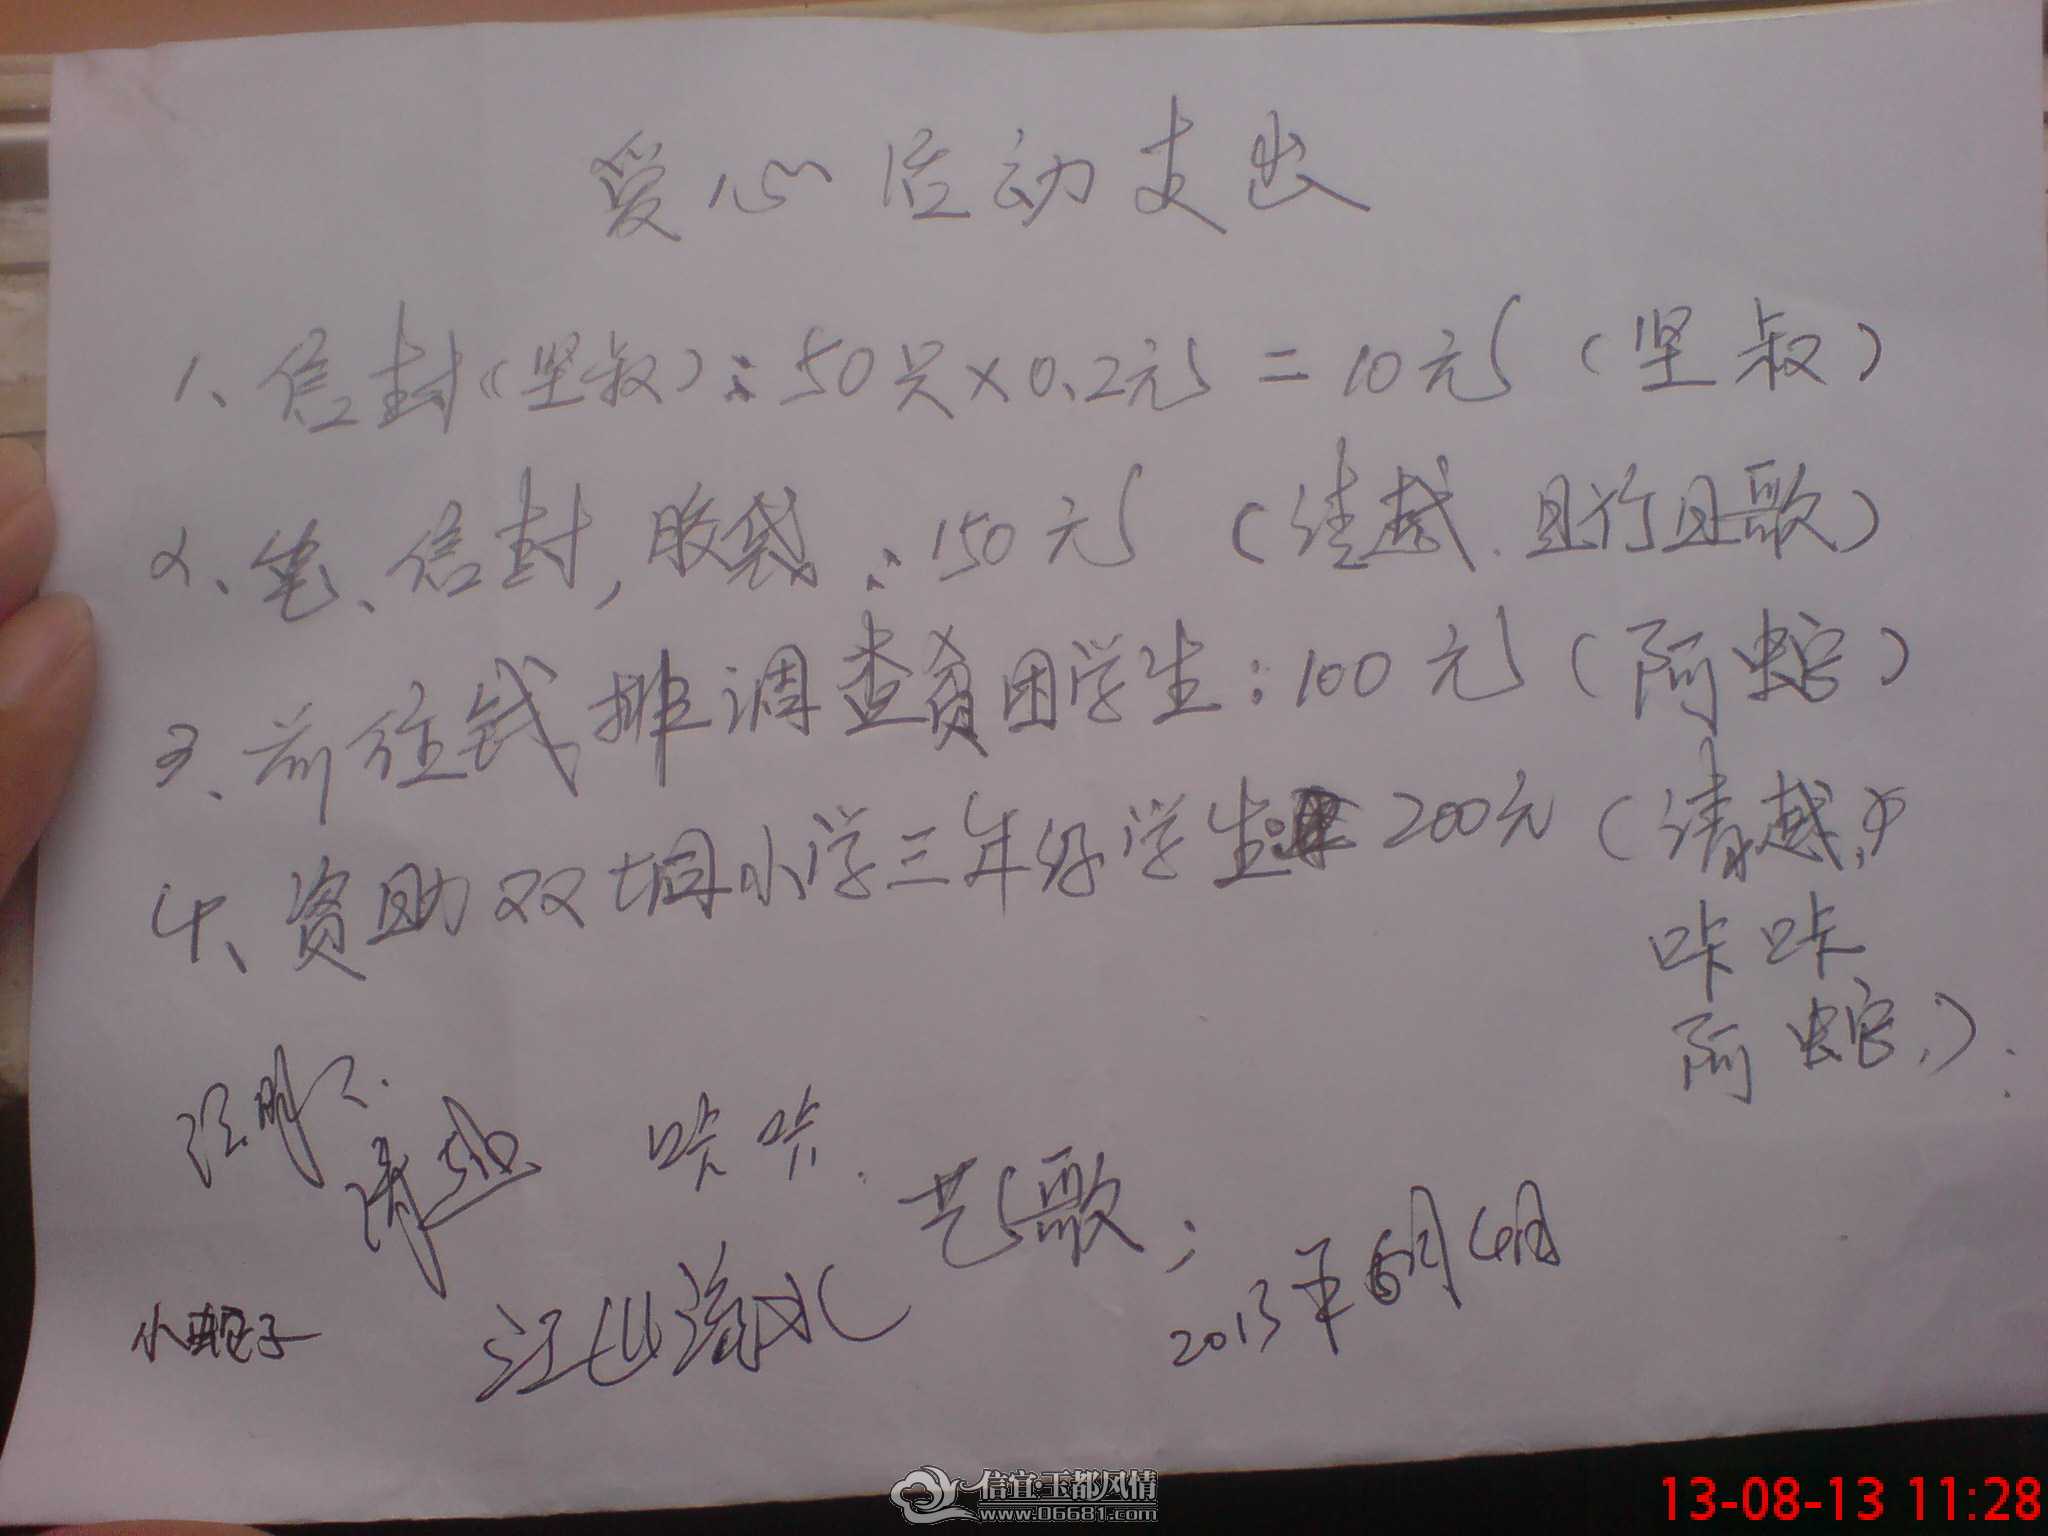 爱心活动支出
1、信封(坚叔)：50只×0.2元=10元(坚叔)
2、笔、信封,胶袋：150元(清越.且行且歌)
3、前往钱排调查贫困学生：100元(阿蛇)
4、资助双垌小学三年级学生 200元(清越,
咔咔
阿蛇,).
清越 咔咔.
艺歌;
小虫包子 江山流水
2013年6月4日
信宜·玉都风情
www.06681.com
13-08-13 11:28